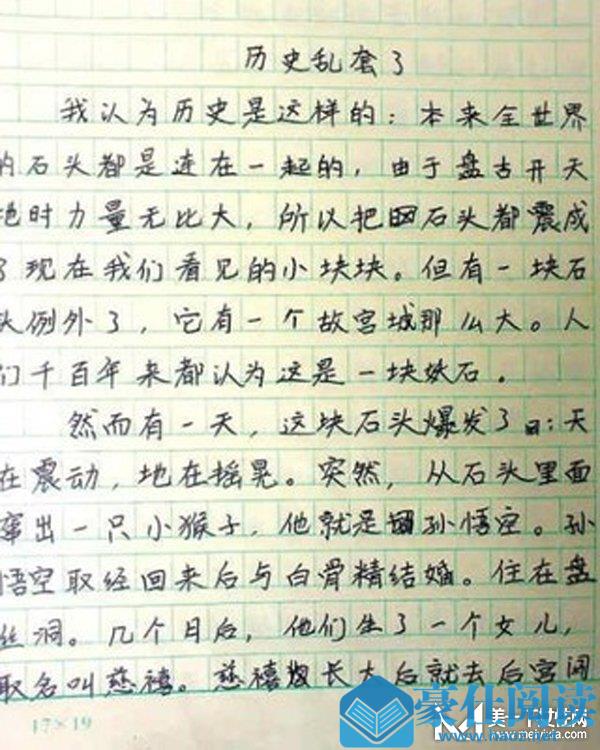 历史乱套了
我认为历史是这样的：本来全世界
的石头都是连在一起的，由于盘古开天
地时力量无比大，所以把石头都震成
了现在我们看见的小块块。但有一块石
头例外了，它有一个故宫城那么大。人
们千百年来都认为这是一块妖石。
然而有一天，这块石头爆发了：天
在震动，地在摇晃。突然，从石头里面
窜出一只小猴子，他就是孙悟空。孙
悟空取经回来后与白骨精结婚。住在盘
丝洞。几个月后，他们生了一个女儿，
取名叫慈禧。慈禧长大后就去后宫闯
17×19
豪仕阅读
www.haoshi.net
美一下女性网
www.meiyixia.com